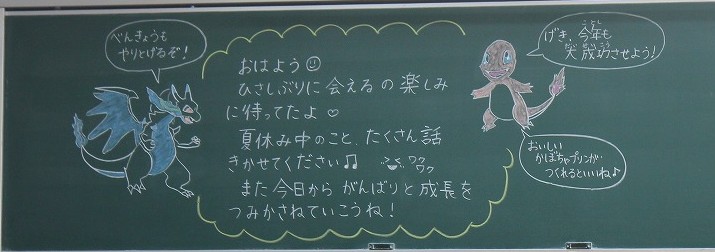 べんきょうも
やりとげるぞ！
おはよう☺
ひさしぶりに会えるの楽しみ
に待ってたよ♡
夏休み中のこと、たくさん話
きかせてください♫ ワクワク
また今日から がんばりと成長を
つみかさねていこうね！
げき、今年も
大成功させよう！
おいしい
かぼちゃプリンが
つくれるといいね♪